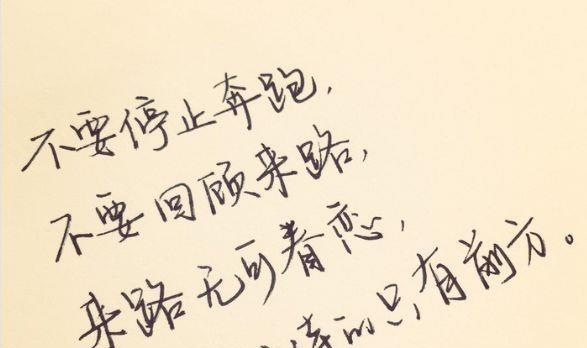 不要停止奔跑，
不要回顾来路，
来路无可眷恋，
的只有前方。